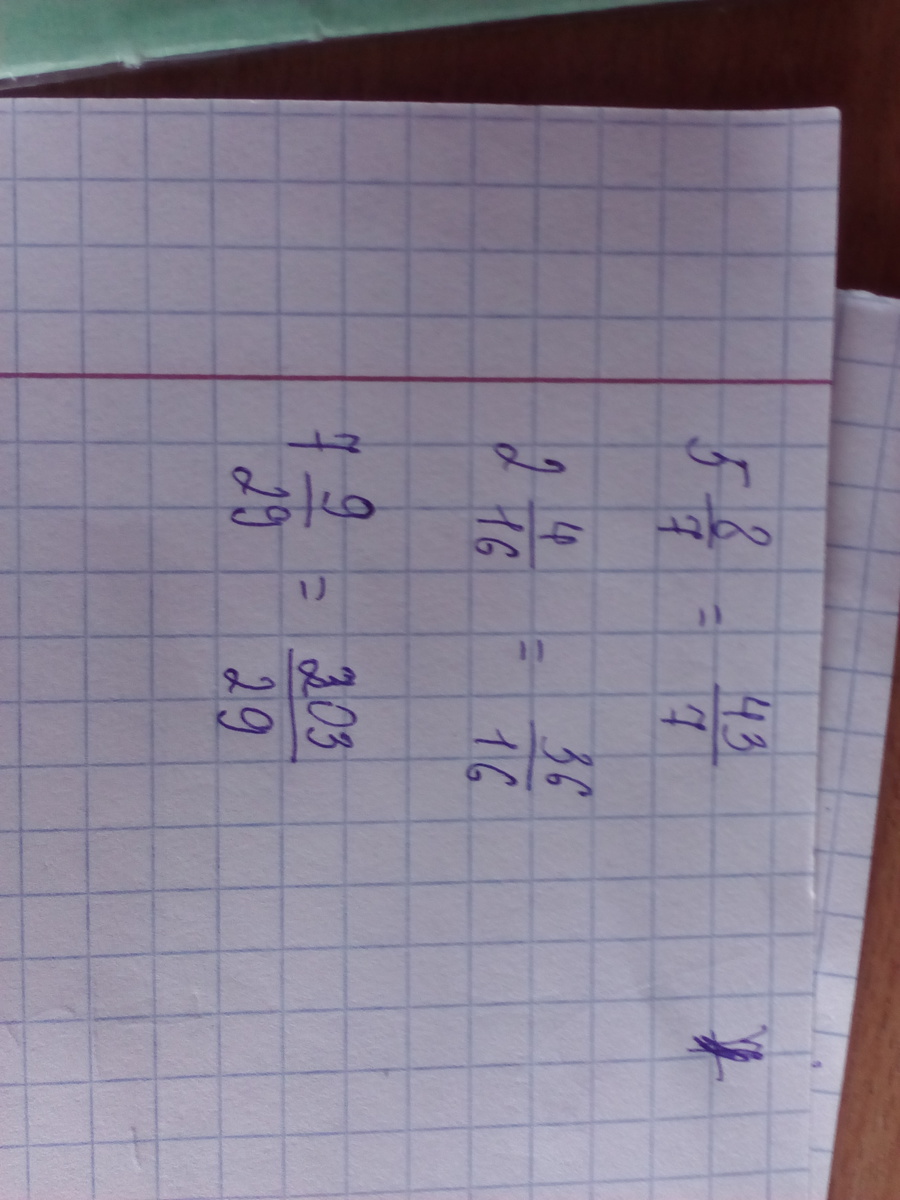 5 2/7 = 43/7
2 4/16 = 36/16
7 9/29 = 203/29